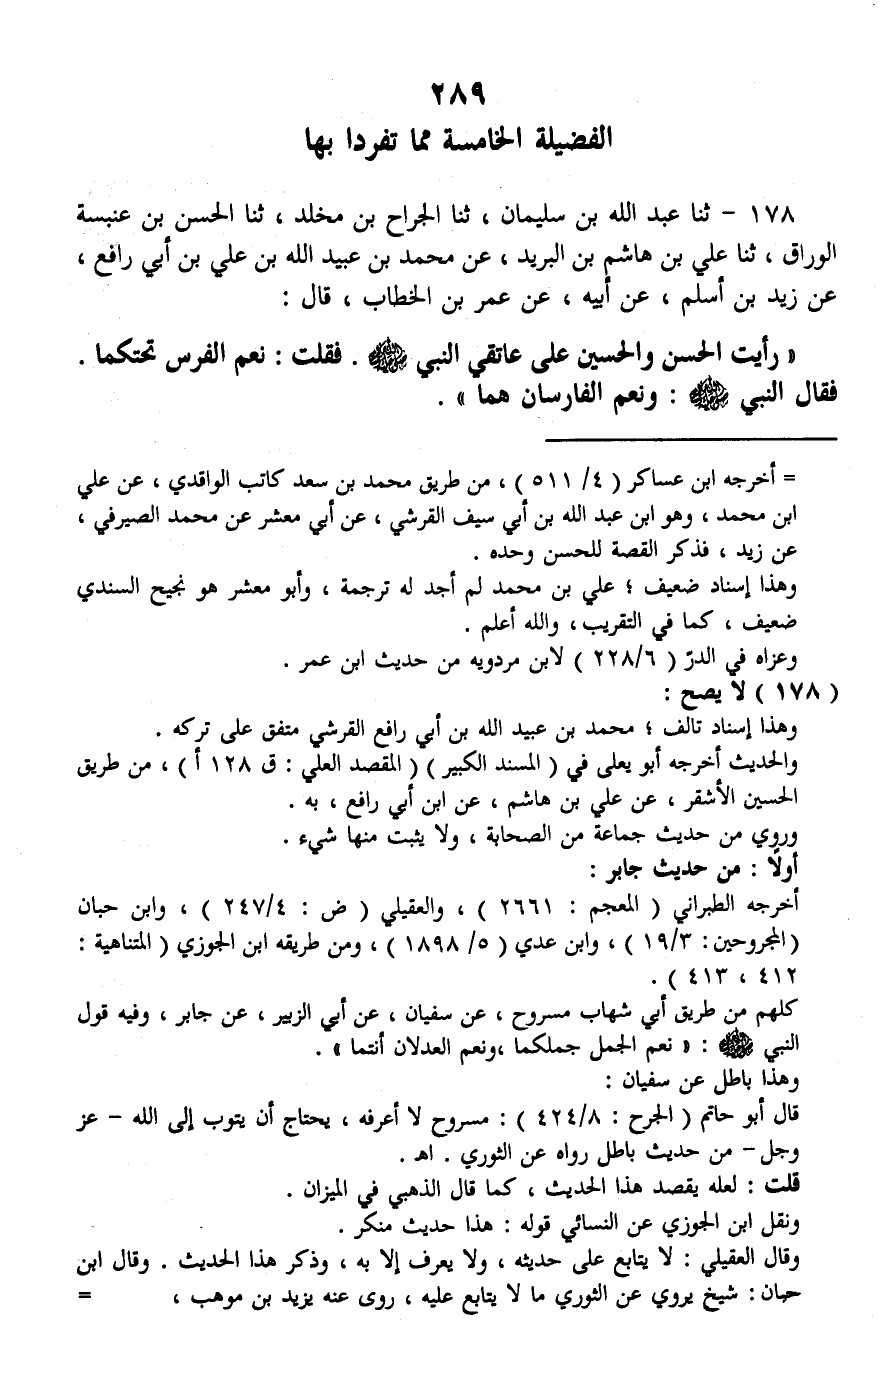 ٢٨٩
الفضيلة الخامسة مما تفردا بها
١٧٨ - ثنا عبد الله بن سليمان ، ثنا الجراح بن مخلد ، ثنا الحسن بن عنبسة
الوراق ، ثنا علي بن هاشم بن البريد ، عن محمد بن عبيد الله بن علي بن أبي رافع ،
عن زيد بن أسلم ، عن أبيه ، عن عمر بن الخطاب ، قال :
« رأيت الحسن والحسين على عاتقي النبي ﷺ . فقلت : نعم الفرس تحتكما .
فقال النبي ﷺ : ونعم الفارسان هما » .
= أخرجه ابن عساكر ( ٤/ ٥١١ ) ، من طريق محمد بن سعد كاتب الواقدي ، عن علي
ابن محمد ، وهو ابن عبد الله بن أبي سيف القرشي ، عن أبي معشر عن محمد الصيرفي ،
عن زيد ، فذكر القصة للحسن وحده .
وهذا إسناد ضعيف ؛ علي بن محمد لم أجد له ترجمة ، وأبو معشر هو نجيح السندي
ضعيف ، كما في التقريب، والله أعلم .
وعزاه في الدرّ ( ٢٢٨/٦ ) لابن مردويه من حديث ابن عمر .
( ١٧٨ ) لا يصح :
وهذا إسناد تالف ؛ محمد بن عبيد الله بن أبي رافع القرشي متفق على تركه .
والحديث أخرجه أبو يعلى في ( المسند الكبير ) ( المقصد العلي : ق ١٢٨ أ ) ، من طريق
الحسين الأشقر ، عن علي بن هاشم ، عن ابن أبي رافع ، به .
وروي من حديث جماعة من الصحابة ، ولا يثبت منها شيء .
أولًا : من حديث جابر :
أخرجه الطبراني ( المعجم : ٢٦٦١ ) ، والعقيلي ( ض : ٢٤٧/٤ ) ، وابن حبان
(المجروحين: ١٩/٣ ) ، وابن عدي ( ٥/ ١٨٩٨ ) ، ومن طريقه ابن الجوزي ( المتناهية :
٤١٢ ، ٤١٣ ) .
كلهم من طريق أبي شهاب مسروح ، عن سفيان ، عن أبي الزبير ، عن جابر ، وفيه قول
النبي ﷺ : « نعم الجمل جملكما ،ونعم العدلان أنتما » .
وهذا باطل عن سفيان :
قال أبو حاتم ( الجرح : ٤٢٤/٨ ) : مسروح لا أعرفه ، يحتاج أن يتوب إلى الله - عز
وجل- من حديث باطل رواه عن الثوري . اهـ .
قلت : لعله يقصد هذا الحديث ، كما قال الذهبي في الميزان .
ونقل ابن الجوزي عن النسائي قوله : هذا حديث منكر .
وقال العقيلي : لا يتابع على حديثه ، ولا يعرف إلا به ، وذكر هذا الحديث . وقال ابن
حبان : شيخ يروي عن الثوري ما لا يتابع عليه ، روى عنه يزيد بن موهب ، =